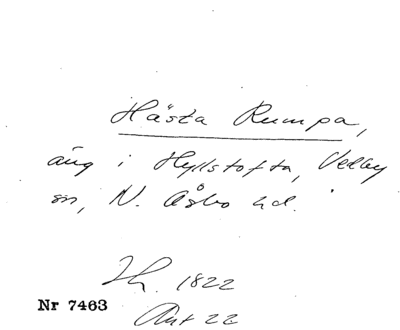 Hästa Rumpa,
äng i Hyllstofta, Vedby
sn, N. Åsbo hd.
Lh. 1822
Akt 22
Nr 7463